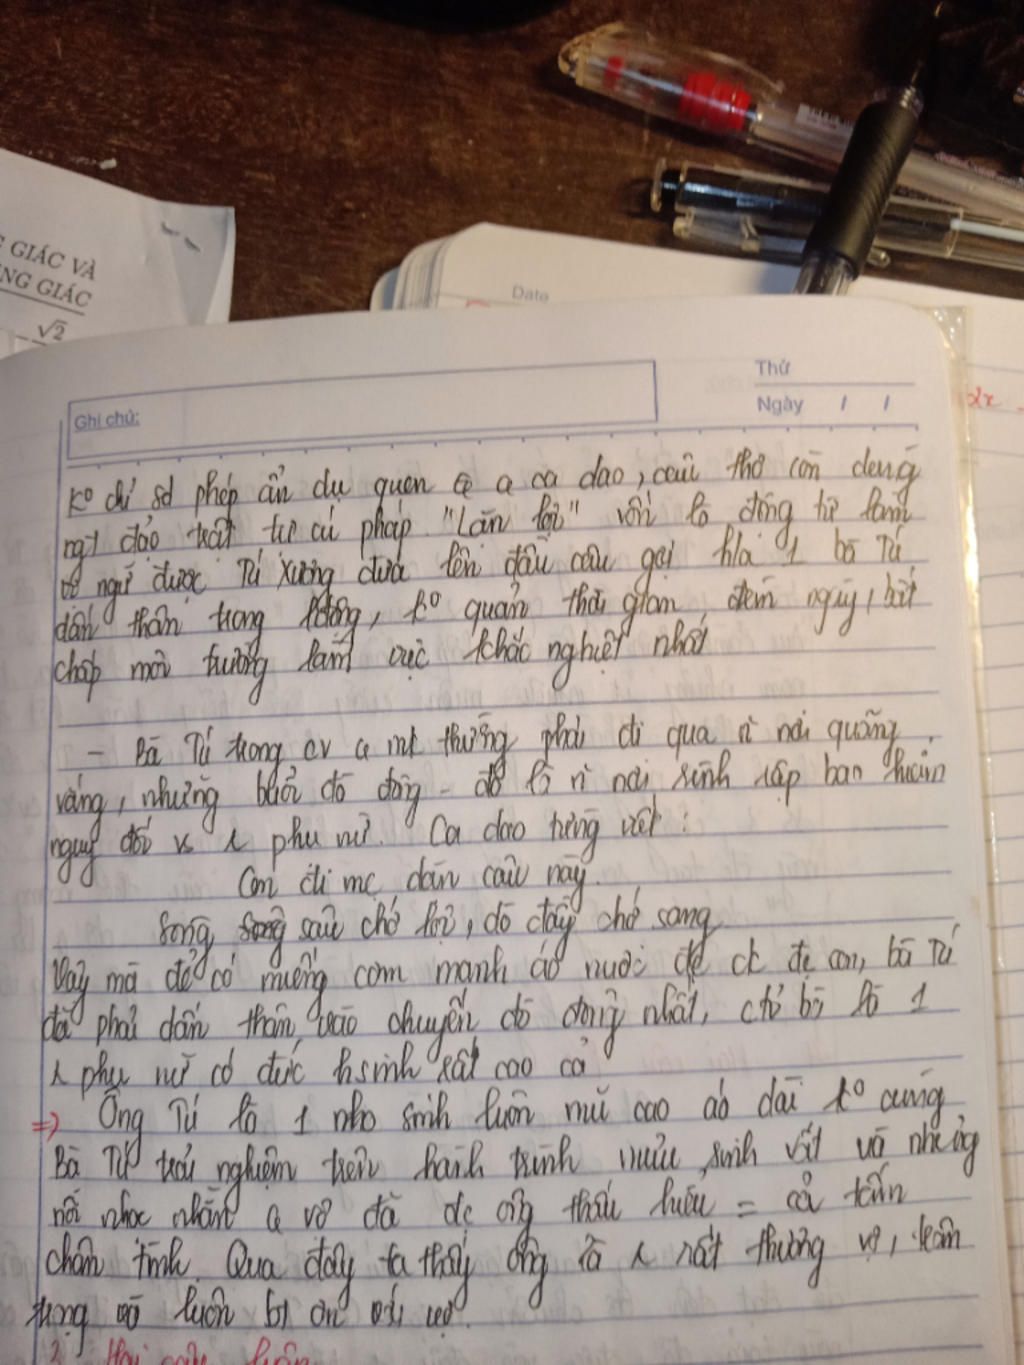 GIÁC VÀ
NG GIÁC
√2
Date
Thứ
Ngày / /
Ghi chú:
2x -
ko chỉ sd phép ẩn dụ quen ca dao, câu thơ còn dùng
đảo trật tự cú pháp "Lặn lội" vốn là động từ làm
vị ngữ được Tú Xương đưa lên đầu câu gợi 1 bà Tú
dấn thân trong ko quản thời gian đêm ngày, bất
chấp môi trường làm khắc nghiệt nhất
- Bà Tú trong cv mk thường phải đi qua n nơi quãng
vắng, những buổi đò đông - đó là n nơi sinh rập ban
nguy đối vs phụ nữ. Ca dao từng viết:
Con ơi mẹ dặn câu này
Sông sâu chớ lội, đò đầy chớ sang
Vậy mà để có miếng cơm manh áo nước để ck đẹ con, bà Tú
đã phải dấn thân vào chuyến đò đông nhất, bà là 1
phụ nữ có đức hsinh rất cao cả
=> Ông Tú là 1 nho sinh luôn mũ cao áo dài ko cùng
Bà Tú trải nghiệm trên hành trình mưu sinh vất vả nhưng
nỗi nhọc nhằn vợ đã đc ông thấu hiểu = cả tấm
chân tình. Qua đây ta thấy ông là rất thương vợ, trân
trọng và luôn bị ơn với vợ.
Hai câu luận